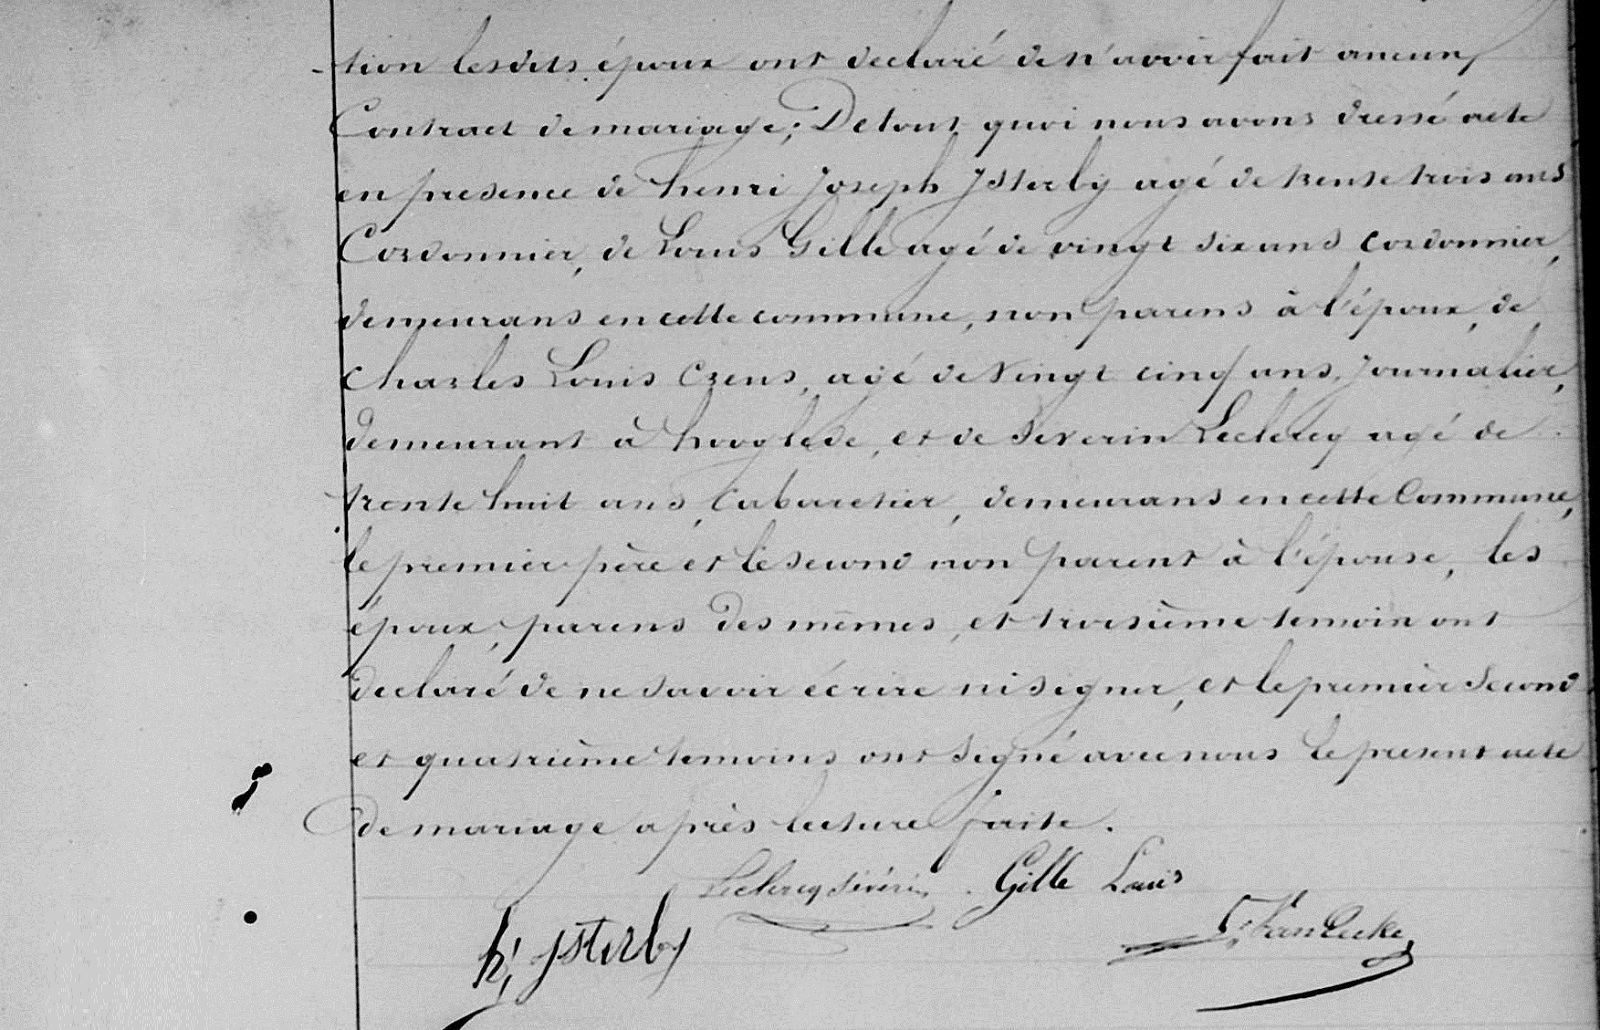 -tion lesdits époux ont declaré de n'avoir fait aucun
Contract de mariage; De tout quoi nous avons dressé acte
en presence de henri Joseph Ysterby agé de trente trois ans
Cordonnier, de Louis Gille agé de vingt six ans, cordonnier,
demeurans en cette commune, non parens à l'époux, de
Charles Louis Crens, agé de Vingt cinq ans, Journalier,
demeurant à hooglede, et de Severin Leclercq agé de
trente huit ans, Cabaretier, demeurans en cette Commune,
le premier père et le second non parent à l'épouse, les
époux, parens des mêmes, et troisième temoin ont
declaré de ne savoir écrire ni signer, et le premier Second
et quatrième temoins ont signé avec nous le present acte
de mariage après lecture faite.
Leclercq Sévérin Gille Louis
h, ysterby